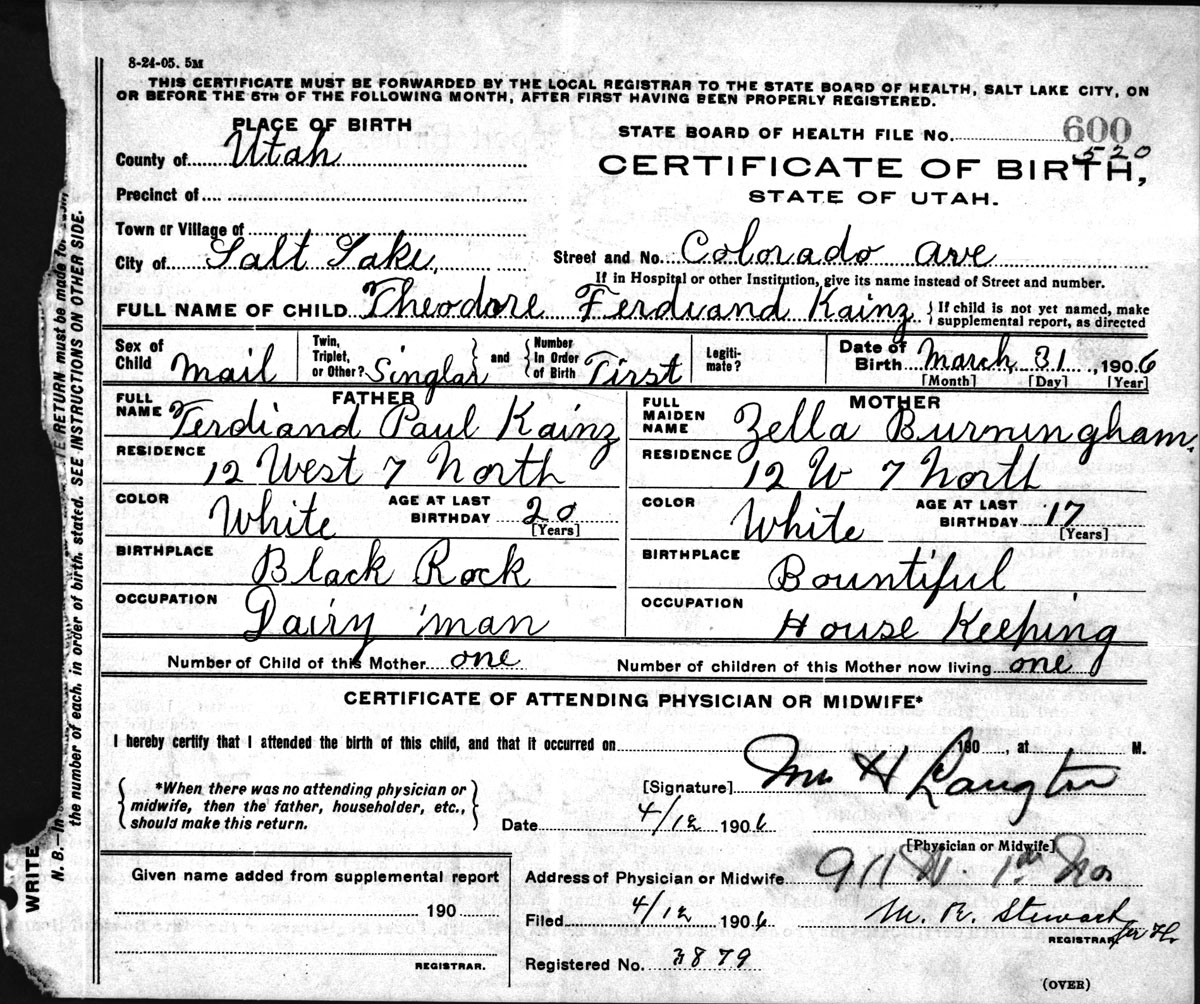 8-24-05. 5M
THIS CERTIFICATE MUST BE FORWARDED BY THE LOCAL REGISTRAR TO THE STATE BOARD OF HEALTH, SALT LAKE CITY, ON
OR BEFORE THE 5TH OF THE FOLLOWING MONTH, AFTER FIRST HAVING BEEN PROPERLY REGISTERED.
PLACE OF BIRTH
STATE BOARD OF HEALTH FILE No. 600
520
County of Utah
CERTIFICATE OF BIRTH,
STATE OF UTAH.
Precinct of
Town or Village of
City of Salt Lake, Street and No. Colorado ave
If in Hospital or other Institution, give its name instead of Street and number.
FULL NAME OF CHILD Theodore Ferdiand Kainz { If child is not yet named, make supplemental report, as directed
Sex of Child Mail Twin, Triplet, or Other? Singlar } and { Number In Order of Birth First Legiti-mate? Date of Birth March 31, 1906
[Month] [Day] [Year]
FATHER MOTHER
FULL NAME Ferdiand Paul Kainz FULL MAIDEN NAME Zella Burningham.
RESIDENCE 12 West 7 North RESIDENCE 12 W 7 North
COLOR White AGE AT LAST BIRTHDAY 20 [Years] COLOR White AGE AT LAST BIRTHDAY 17 [Years]
BIRTHPLACE Black Rock BIRTHPLACE Bountiful
OCCUPATION Dairy man OCCUPATION House Keeping
Number of Child of this Mother one Number of children of this Mother now living one
CERTIFICATE OF ATTENDING PHYSICIAN OR MIDWIFE*
I hereby certify that I attended the birth of this child, and that it occurred on 190 , at M.
{ *When there was no attending physician or midwife, then the father, householder, etc., should make this return. }
[Signature] H Langton
Date 4/12 1906
[Physician or Midwife]
Given name added from supplemental report
Address of Physician or Midwife 911 W. 1st No
190
Filed 4/12 1906 M. R. Stewart
REGISTRAR
REGISTRAR.
Registered No. 3879
(OVER)
WRITE
N. B.—In
RETURN must be made for
the number of each, in order of birth, stated. SEE INSTRUCTIONS ON OTHER SIDE.